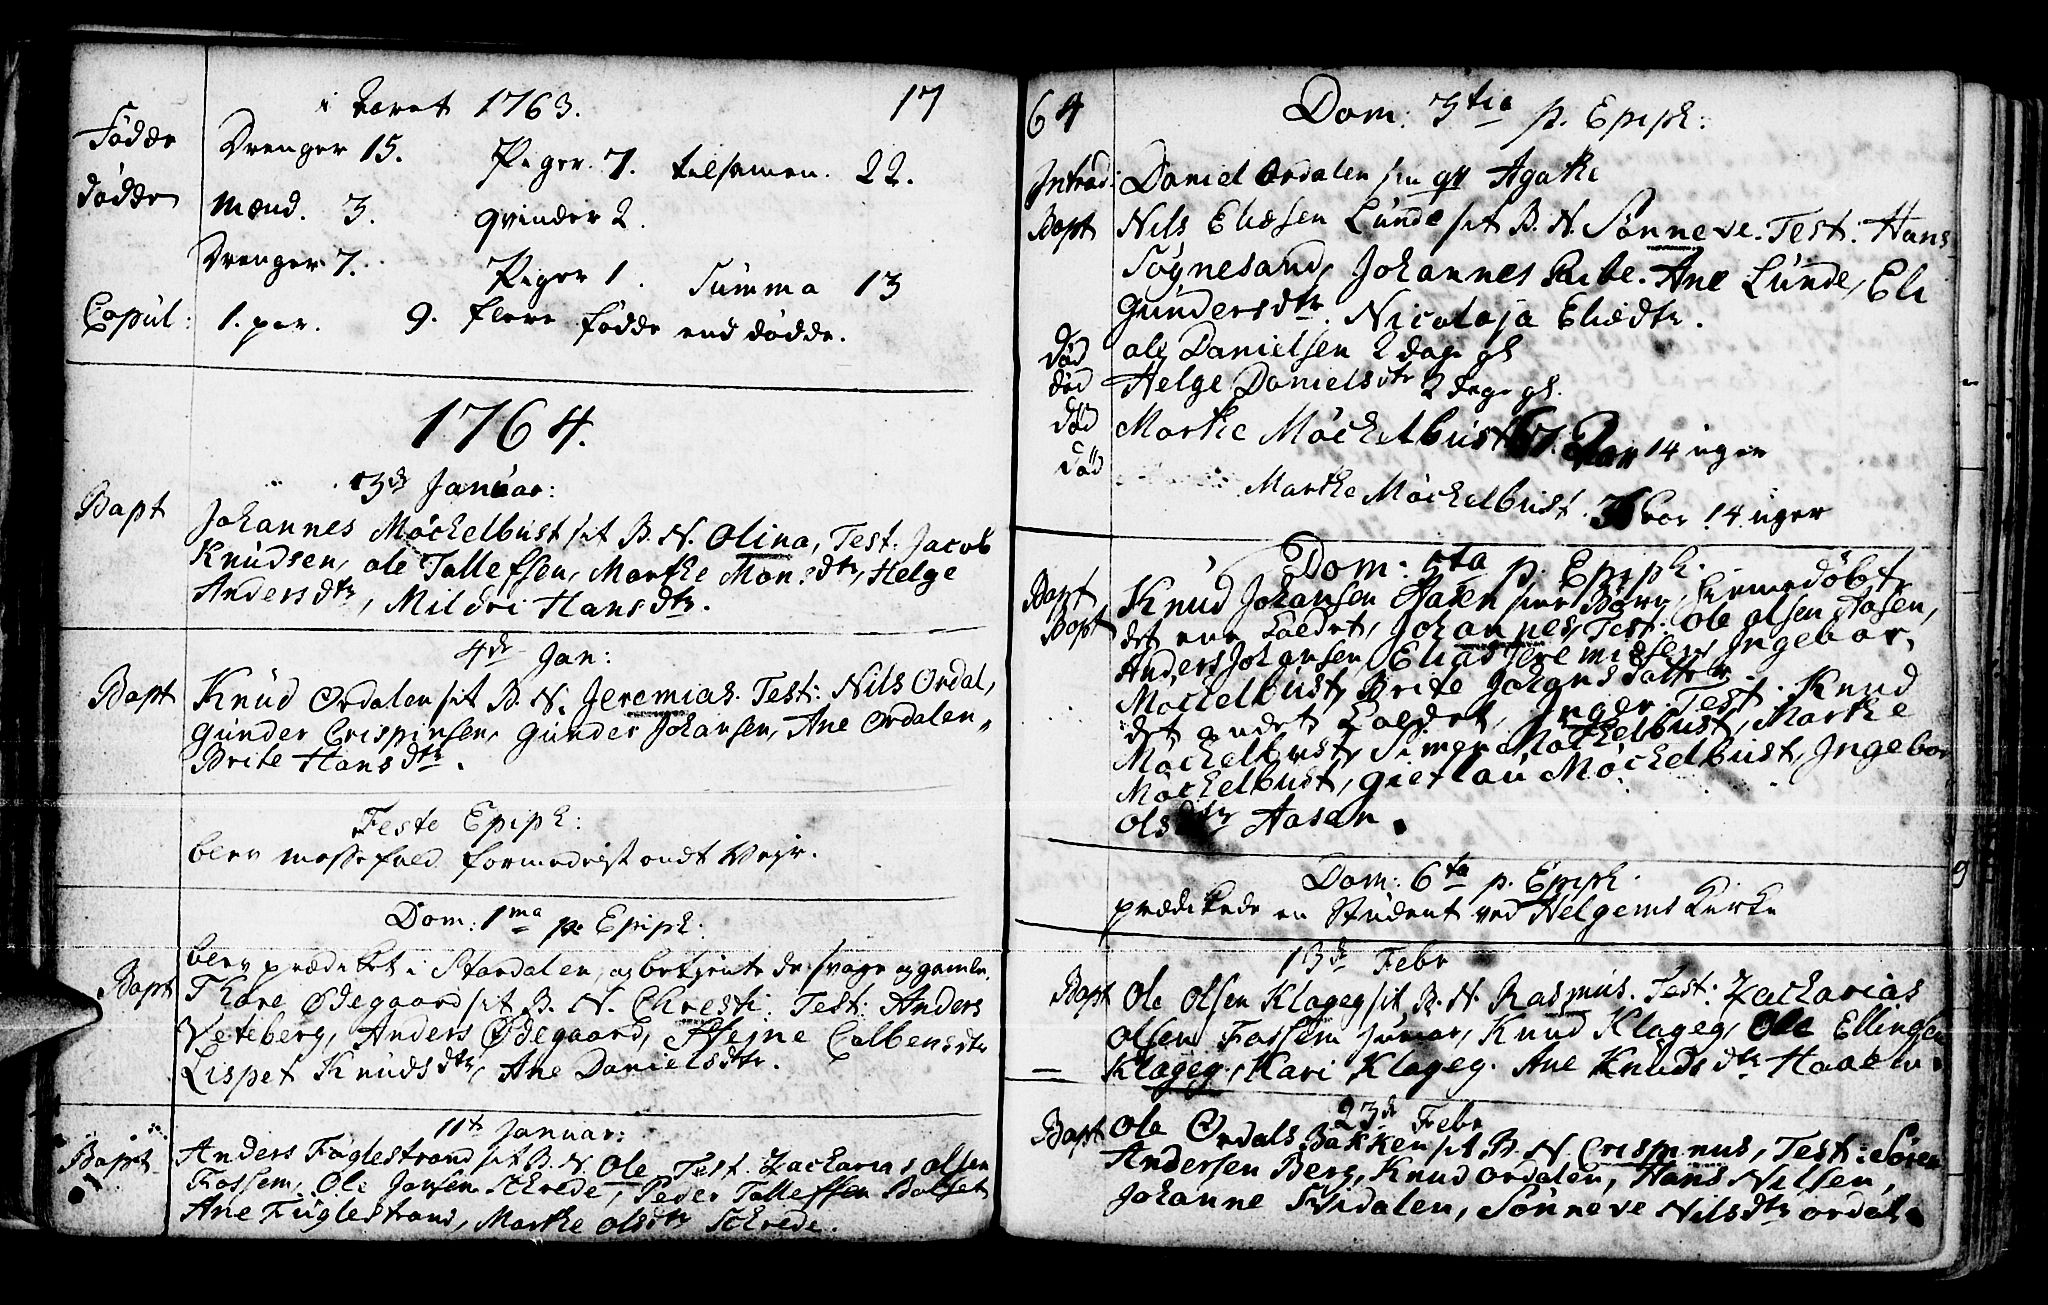 i Aaret 1763. 17
Fødde Drenger 15. Piger. 7. tilsamen. 22.
dødde Mænd. 3. qvinder 2.
Drenger 7. Piger 1. Summa 13
Copul: 1. par. 9. flere fødde end dødde.
1764.
3de Januar:
Bapt Johannes Møchelbust sit B. N. Olina, Test: Jacob
Knudsen, ole Tallefsen, Marthe Monsdtr, Helge
Andersdtr, Mildri Hansdtr.
4de Jan:
Bapt Knud Ordalen sit B. N. Jeremias. Test: Nils Ordal,
Gunder Crispinsen, Gunder Johansen, Ane Ordalen,
Brite Hansdtr.
Festo Epiph:
blev messefald formedelst ondt Vejr.
Dom: 1ma p. Epiph:
blev prædiket i Stardalen, og betjente de svage og gamle.
Bapt Thore Ødegaard sit B. N. Christi. Test: Anders
Veteberg, Anders Ødegaard, Steine Colbensdtr
Lispet Knudsdtr, Ane Danielsdtr.
11te Januar:
Bapt Anders Fuglestrand sit B. N. Ole Test. Zacharias olsen
Fossem, Ole Jansen Schrede, Peder Tallefsen Bolset
Ane Fuglestrand, Marthe olsdtr Schrede.
64 Dom: 3tia p. Epiph:
Introd: Daniel Ordalen sin qv Agathe
Bapt Nils Eliæsen Lunde sit B. N. Sønneve. Test: Hans
Søgnesand, Johannes Ribe. Ane Lunde, Eli
Gundersdtr. Nicolaja Eliædtr.
død ole Danielsen 2 dage gl
død Helge Danielsdtr 2 dage gl.
død Marthe Møchelbust 14 uger
død Marthe Møchelbust. 14 uger
Dom: 5ta p. Epiph.
Bapt Knud Johansen Aasen hiemedøbt
Bapt det ene kaldet, Johannes, Test: Ole olsen Aasen,
Anders Johansen, Elias Jeremiæsen, Ingebor,
Møchelbust, Brite Johans dotter.
det andet kaldet, Inger, Test. Knud
Møchelbust, Simen Møchelbust, Marthe
Møchelbust, Gietlau Møchelbust, Ingebor
olsdtr Aasen.
Dom: 6ta p. Epiph.
prædikede en Student ved Helgems Kirke
13de Febr
Bapt Ole Olsen Klageg sit B. N. Rasmus. Test: Zacharias
olsen Fossem, Knud Klageg, Ole Ellingsen
Klageg, Kari Klageg. Ane Knudsdtr Haalen.
23de Febr
Bapt Ole Ordals Bakken sit B. N. Crispinus, Test: Søren
Andersen Berg, Knud ordalen, Hans Nilsen,
Johanne Svidalen, Sønneve Nilsdtr ordal.